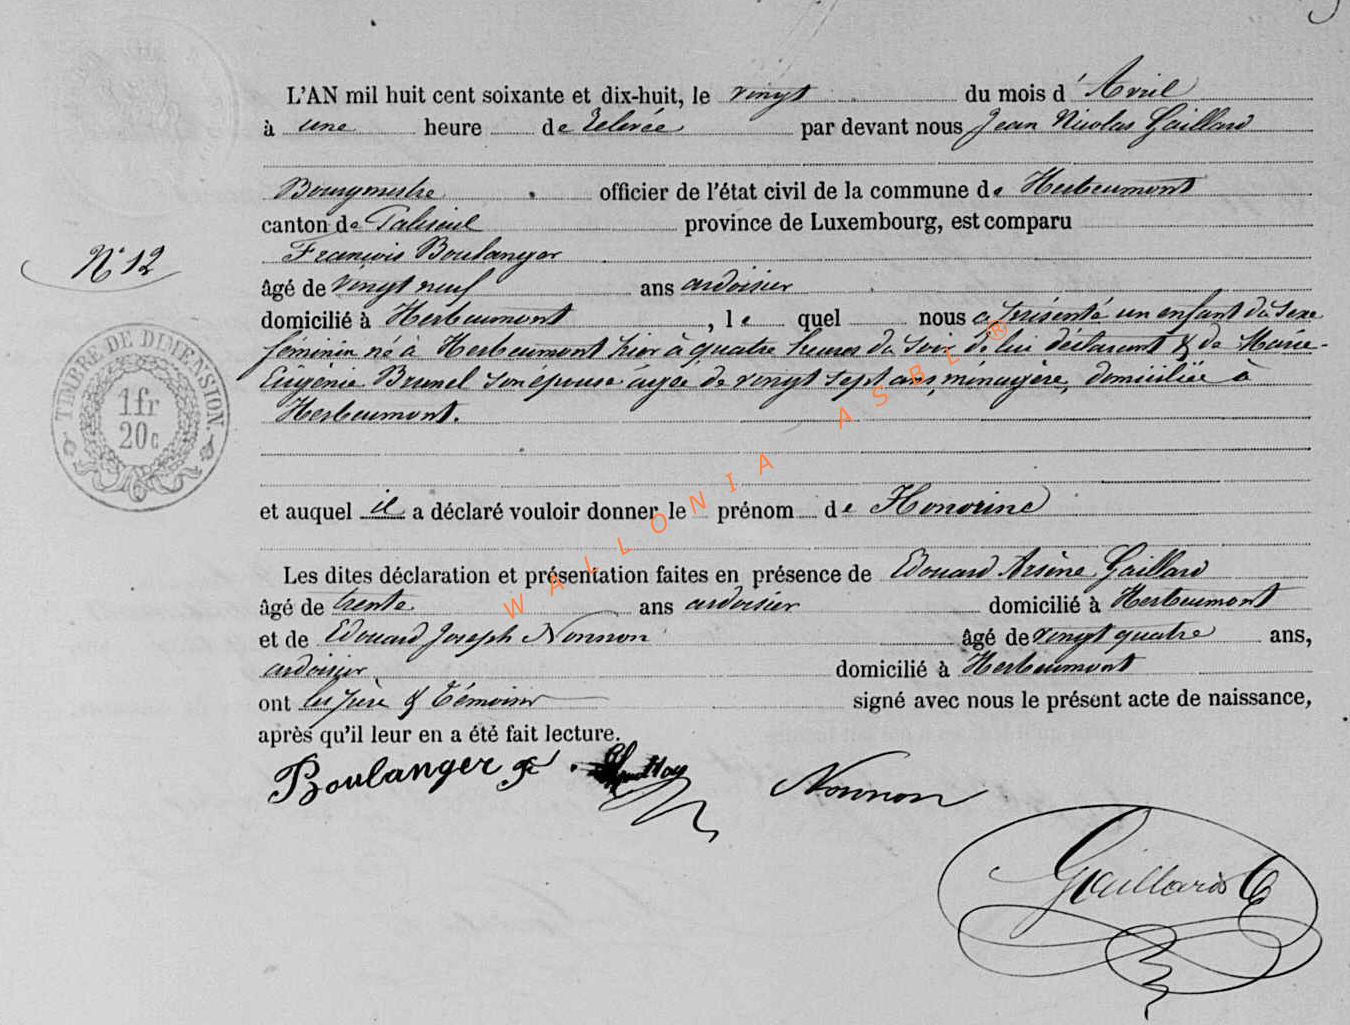 L'AN mil huit cent soixante et dix-huit, le vingt du mois d'Avril
à une heure de relevée par devant nous Jean Nicolas Gaillard
Bourgmestre officier de l'état civil de la commune de Herbeumont
canton de Paliseul province de Luxembourg, est comparu
François Boulanger
N° 12
âgé de vingt neuf ans ardoisier
domicilié à Herbeumont, le quel nous a présenté un enfant du sexe
féminin né à Herbeumont hier à quatre heures du soir de lui déclarant & de Marie-
Eugénie Brunel son épouse âgée de vingt sept ans, ménagère, domiciliée à
Herbeumont.
TIMBRE DE DIMENSION.
1fr
20c
et auquel il a déclaré vouloir donner le prénom de Honorine
Les dites déclaration et présentation faites en présence de Edouard Arsène Gaillard
âgé de trente ans ardoisier domicilié à Herbeumont
et de Edouard Joseph Nonnon âgé de vingt quatre ans,
ardoisier domicilié à Herbeumont
ont les père & témoins signé avec nous le présent acte de naissance,
après qu'il leur en a été fait lecture.
Boulanger f.
Nonnon
Gaillard
WALLONIA ASBL ®